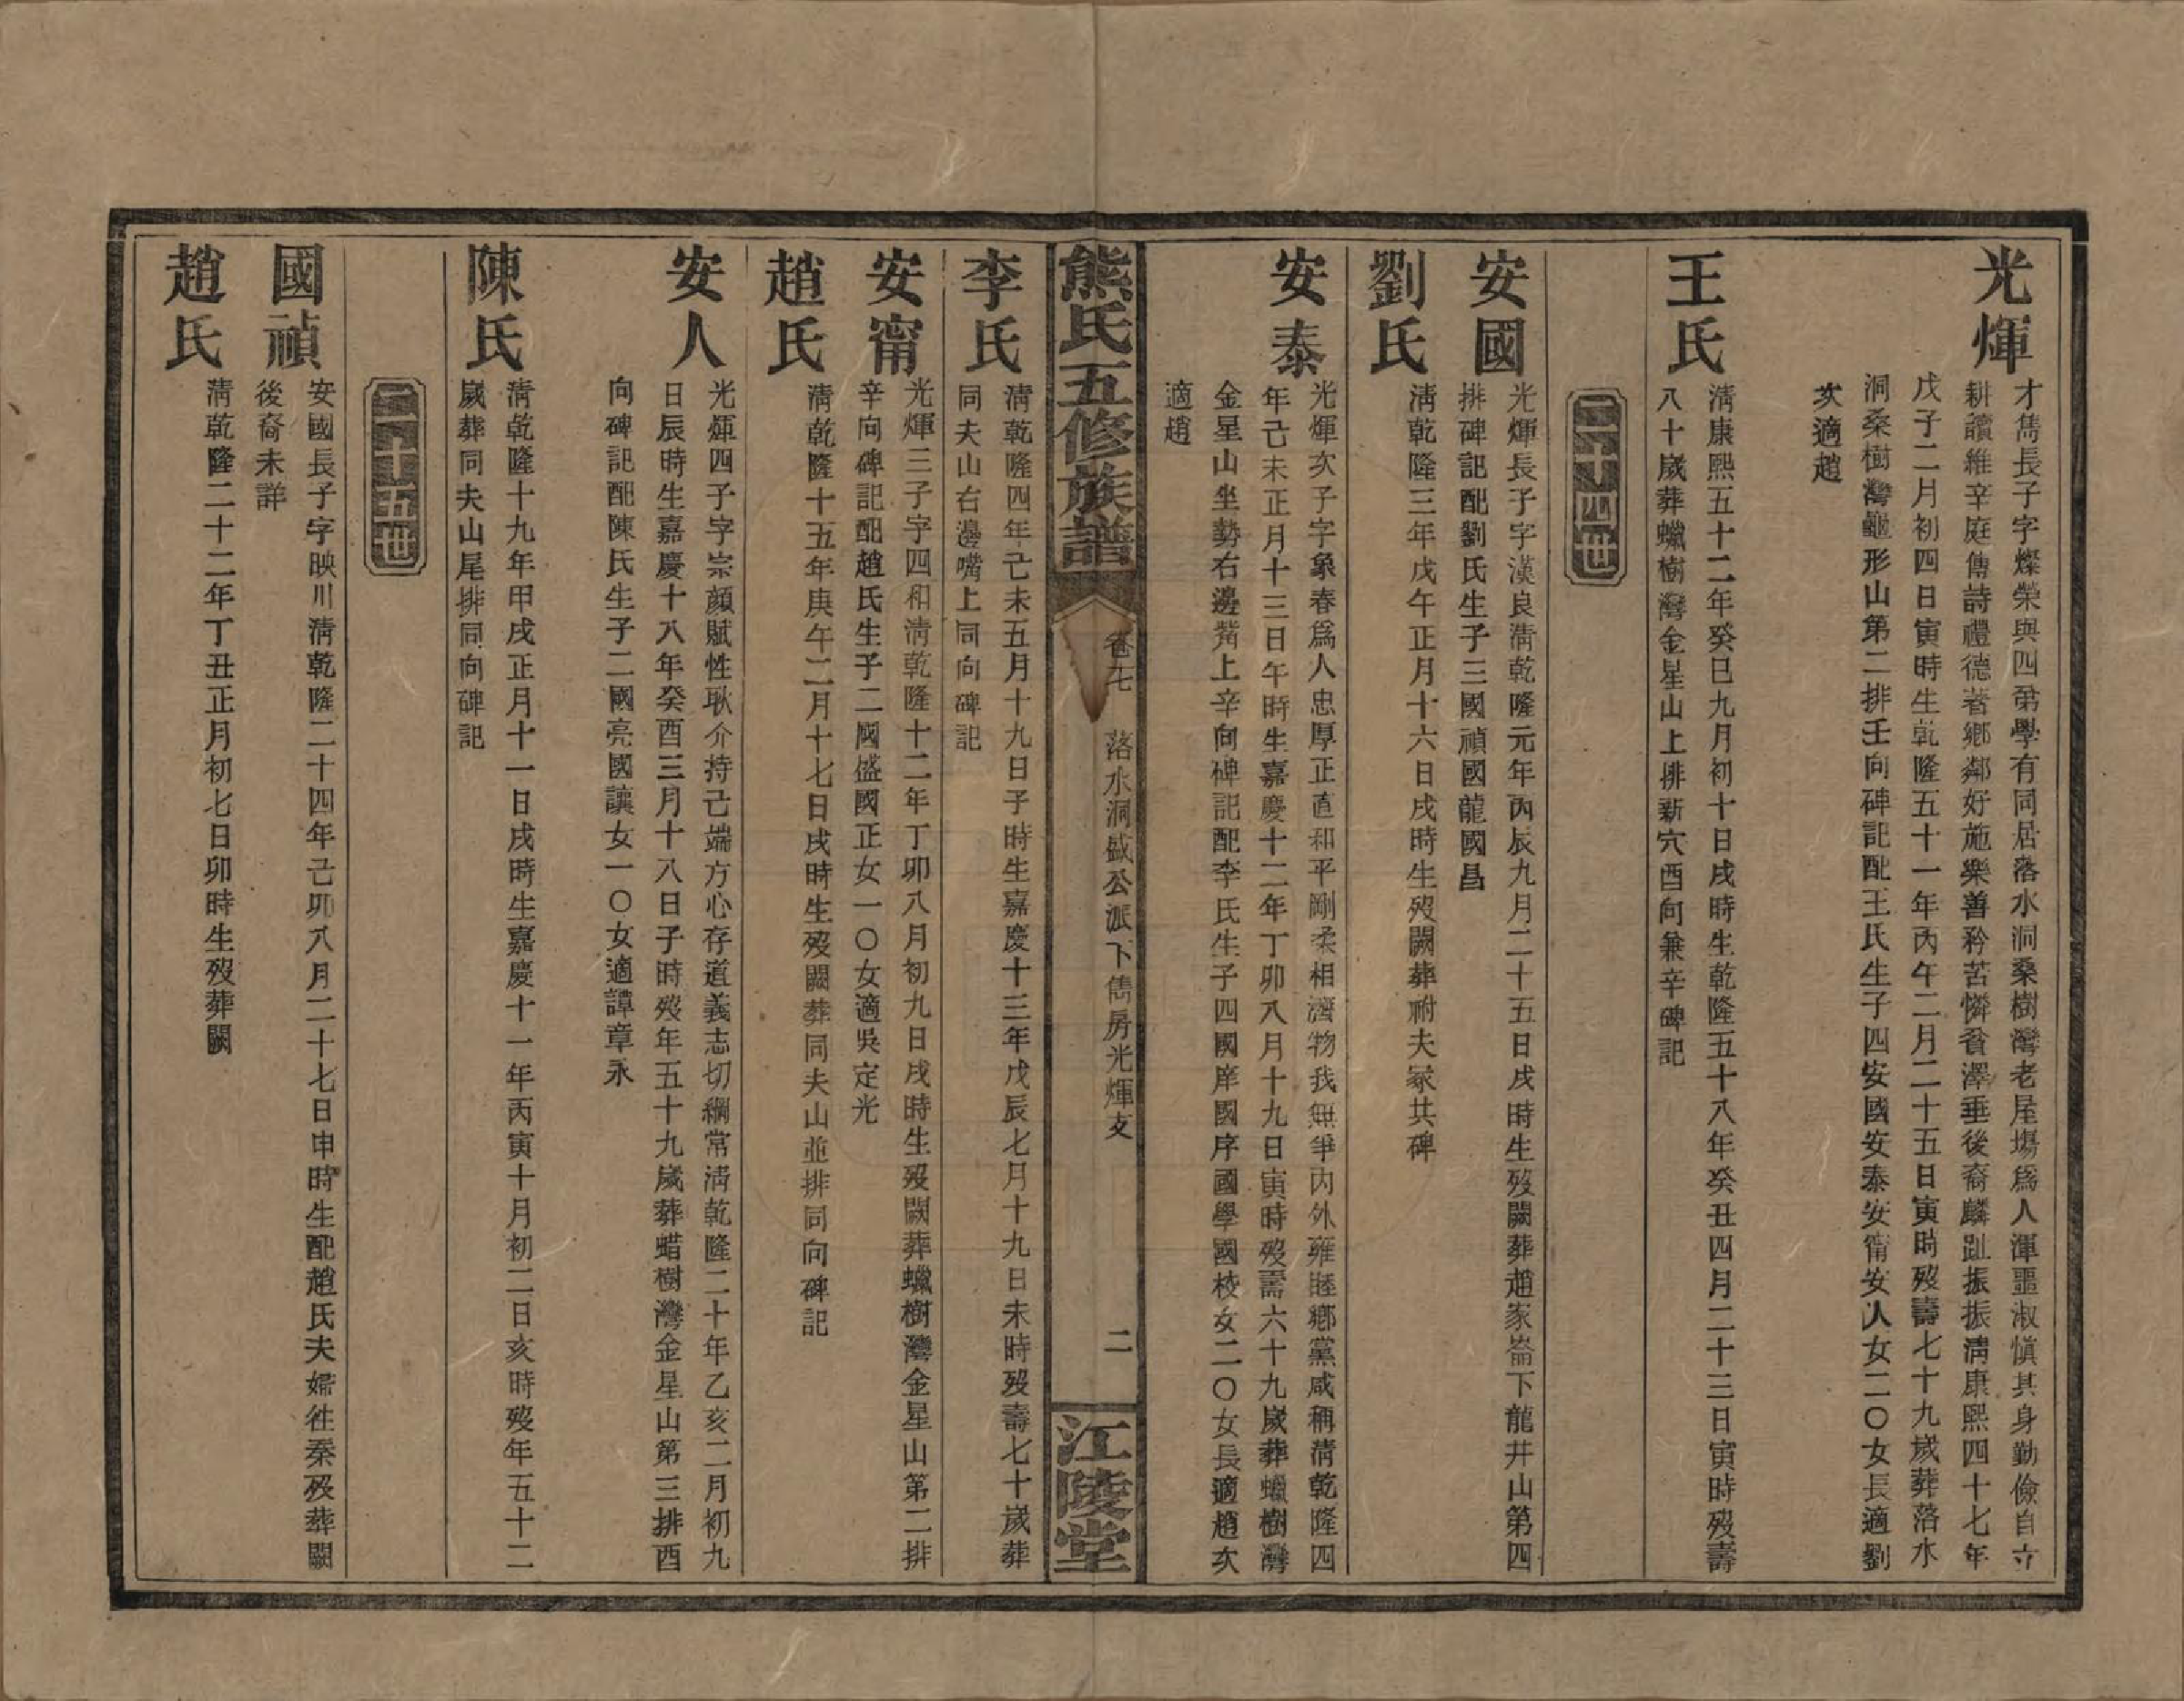 光煇
才雋長子字燦榮與四弟學有同居落水洞桑樹灣老屋塲爲人渾噩淑慎其身勤儉自立
耕讀維辛庭傳詩禮德著鄉鄰好施樂善矜苦憐貧澤垂後裔麟趾振振淸康熙四十七年
戊子二月初四日寅時生乾隆五十一年丙午二月二十五日寅時歿壽七十九歲葬落水
洞桑樹灣龜形山第二排壬向碑記配王氏生子四安國安泰安甯安人女二〇女長適劉
次適趙
王氏
淸康熙五十二年癸巳九月初十日戌時生乾隆五十八年癸丑四月二十三日寅時歿壽
八十歲葬蠟樹灣金星山上排新穴酉向兼辛碑記
二十四世
安國
光煇長子字漢良淸乾隆元年丙辰九月二十五日戌時生歿闕葬趙家崙下龍井山第四
排碑記配劉氏生子三國禎國龍國昌
劉氏
淸乾隆三年戊午正月十六日戌時生歿闕葬祔夫冢共碑
安泰
光煇次子字象春爲人忠厚正直和平剛柔相濟物我無爭内外雍睦鄉黨咸稱淸乾隆四
年己未正月十三日午時生嘉慶十二年丁卯八月十九日寅時歿壽六十九歲葬蠟樹灣
金星山坐勢右邊嘴上辛向碑記配李氏生子四國庠國序國學國校女二〇女長適趙次
適趙
熊氏五修族譜
卷七
落水洞盛公派下雋房光煇支
二
江陵堂
李氏
淸乾隆四年己未五月十九日子時生嘉慶十三年戊辰七月十九日未時歿壽七十歲葬
同夫山右邊嘴上同向碑記
安甯
光煇三子字四和淸乾隆十二年丁卯八月初九日戌時生歿闕葬蠟樹灣金星山第二排
辛向碑記配趙氏生子二國盛國正女一〇女適吳定光
趙氏
淸乾隆十五年庚午二月十七日戌時生歿闕葬同夫山並排同向碑記
安人
光煇四子字宗顔賦性耿介持己端方心存道義志切綱常淸乾隆二十年乙亥二月初九
日辰時生嘉慶十八年癸酉三月十八日子時歿年五十九歲葬蜡樹灣金星山第三排酉
向碑記配陳氏生子二國亮國讓女一〇女適譚章永
陳氏
淸乾隆十九年甲戌正月十一日戌時生嘉慶十一年丙寅十月初二日亥時歿年五十二
歲葬同夫山尾排同向碑記
二十五世
國禎
安國長子字映川淸乾隆二十四年己卯八月二十七日申時生配趙氏夫婦徃秦歿葬闕
後裔未詳
趙氏
淸乾隆二十二年丁丑正月初七日卯時生歿葬闕